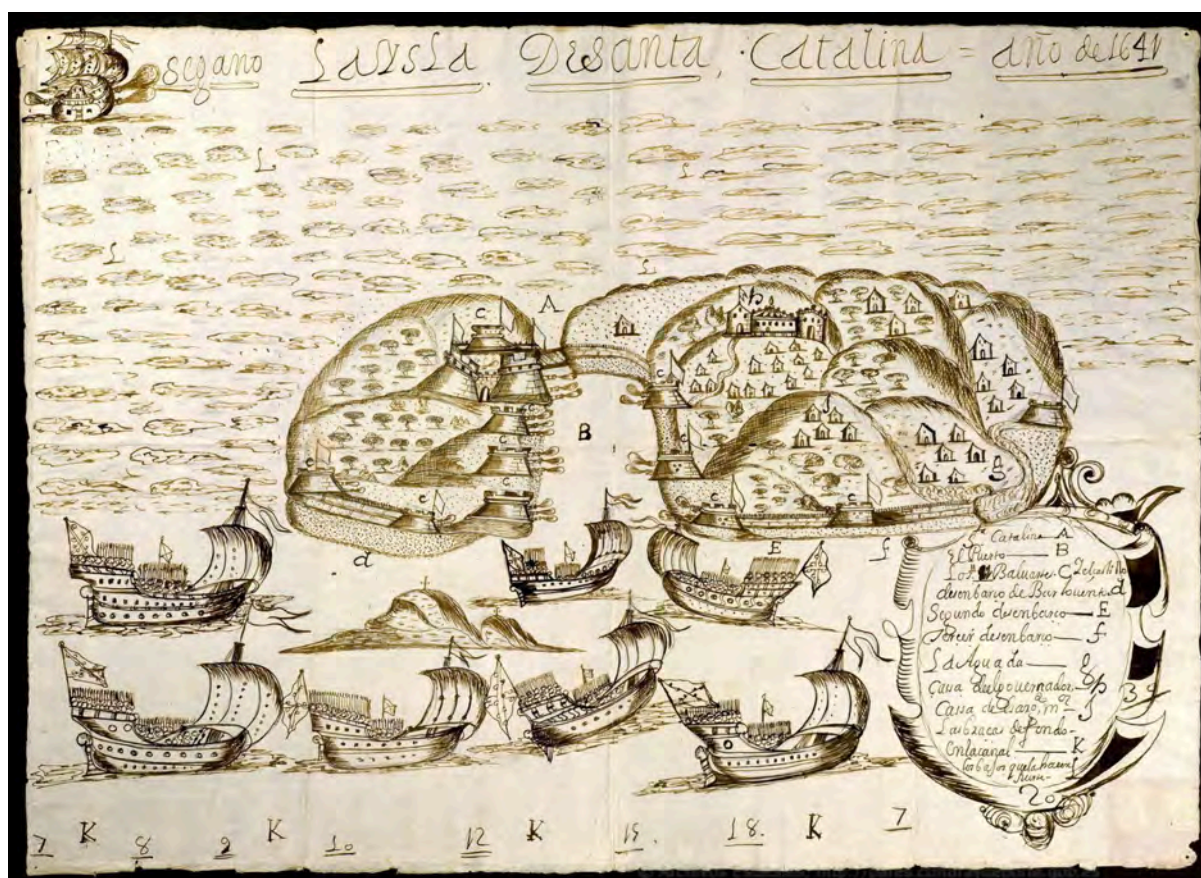 seg ano La ysla De santa Catalina = año de 1641
L
L m
L
L
A
h
C
C
B
C
C
C
f
C
g
C
C
C
C
C
d
E
f
Catalina — A
El Puerto — B
Los Baluartes C del castillo
desenbarco de Barlovento d
Segundo desenbarco — E
tercer desenbarco — f
La Aguada — g
Cassa del governador — h
Las brazas de fondo
en la canal — K
los bajos que la hacen
20
K K K K
7 8 9 10 12 15 18. 7